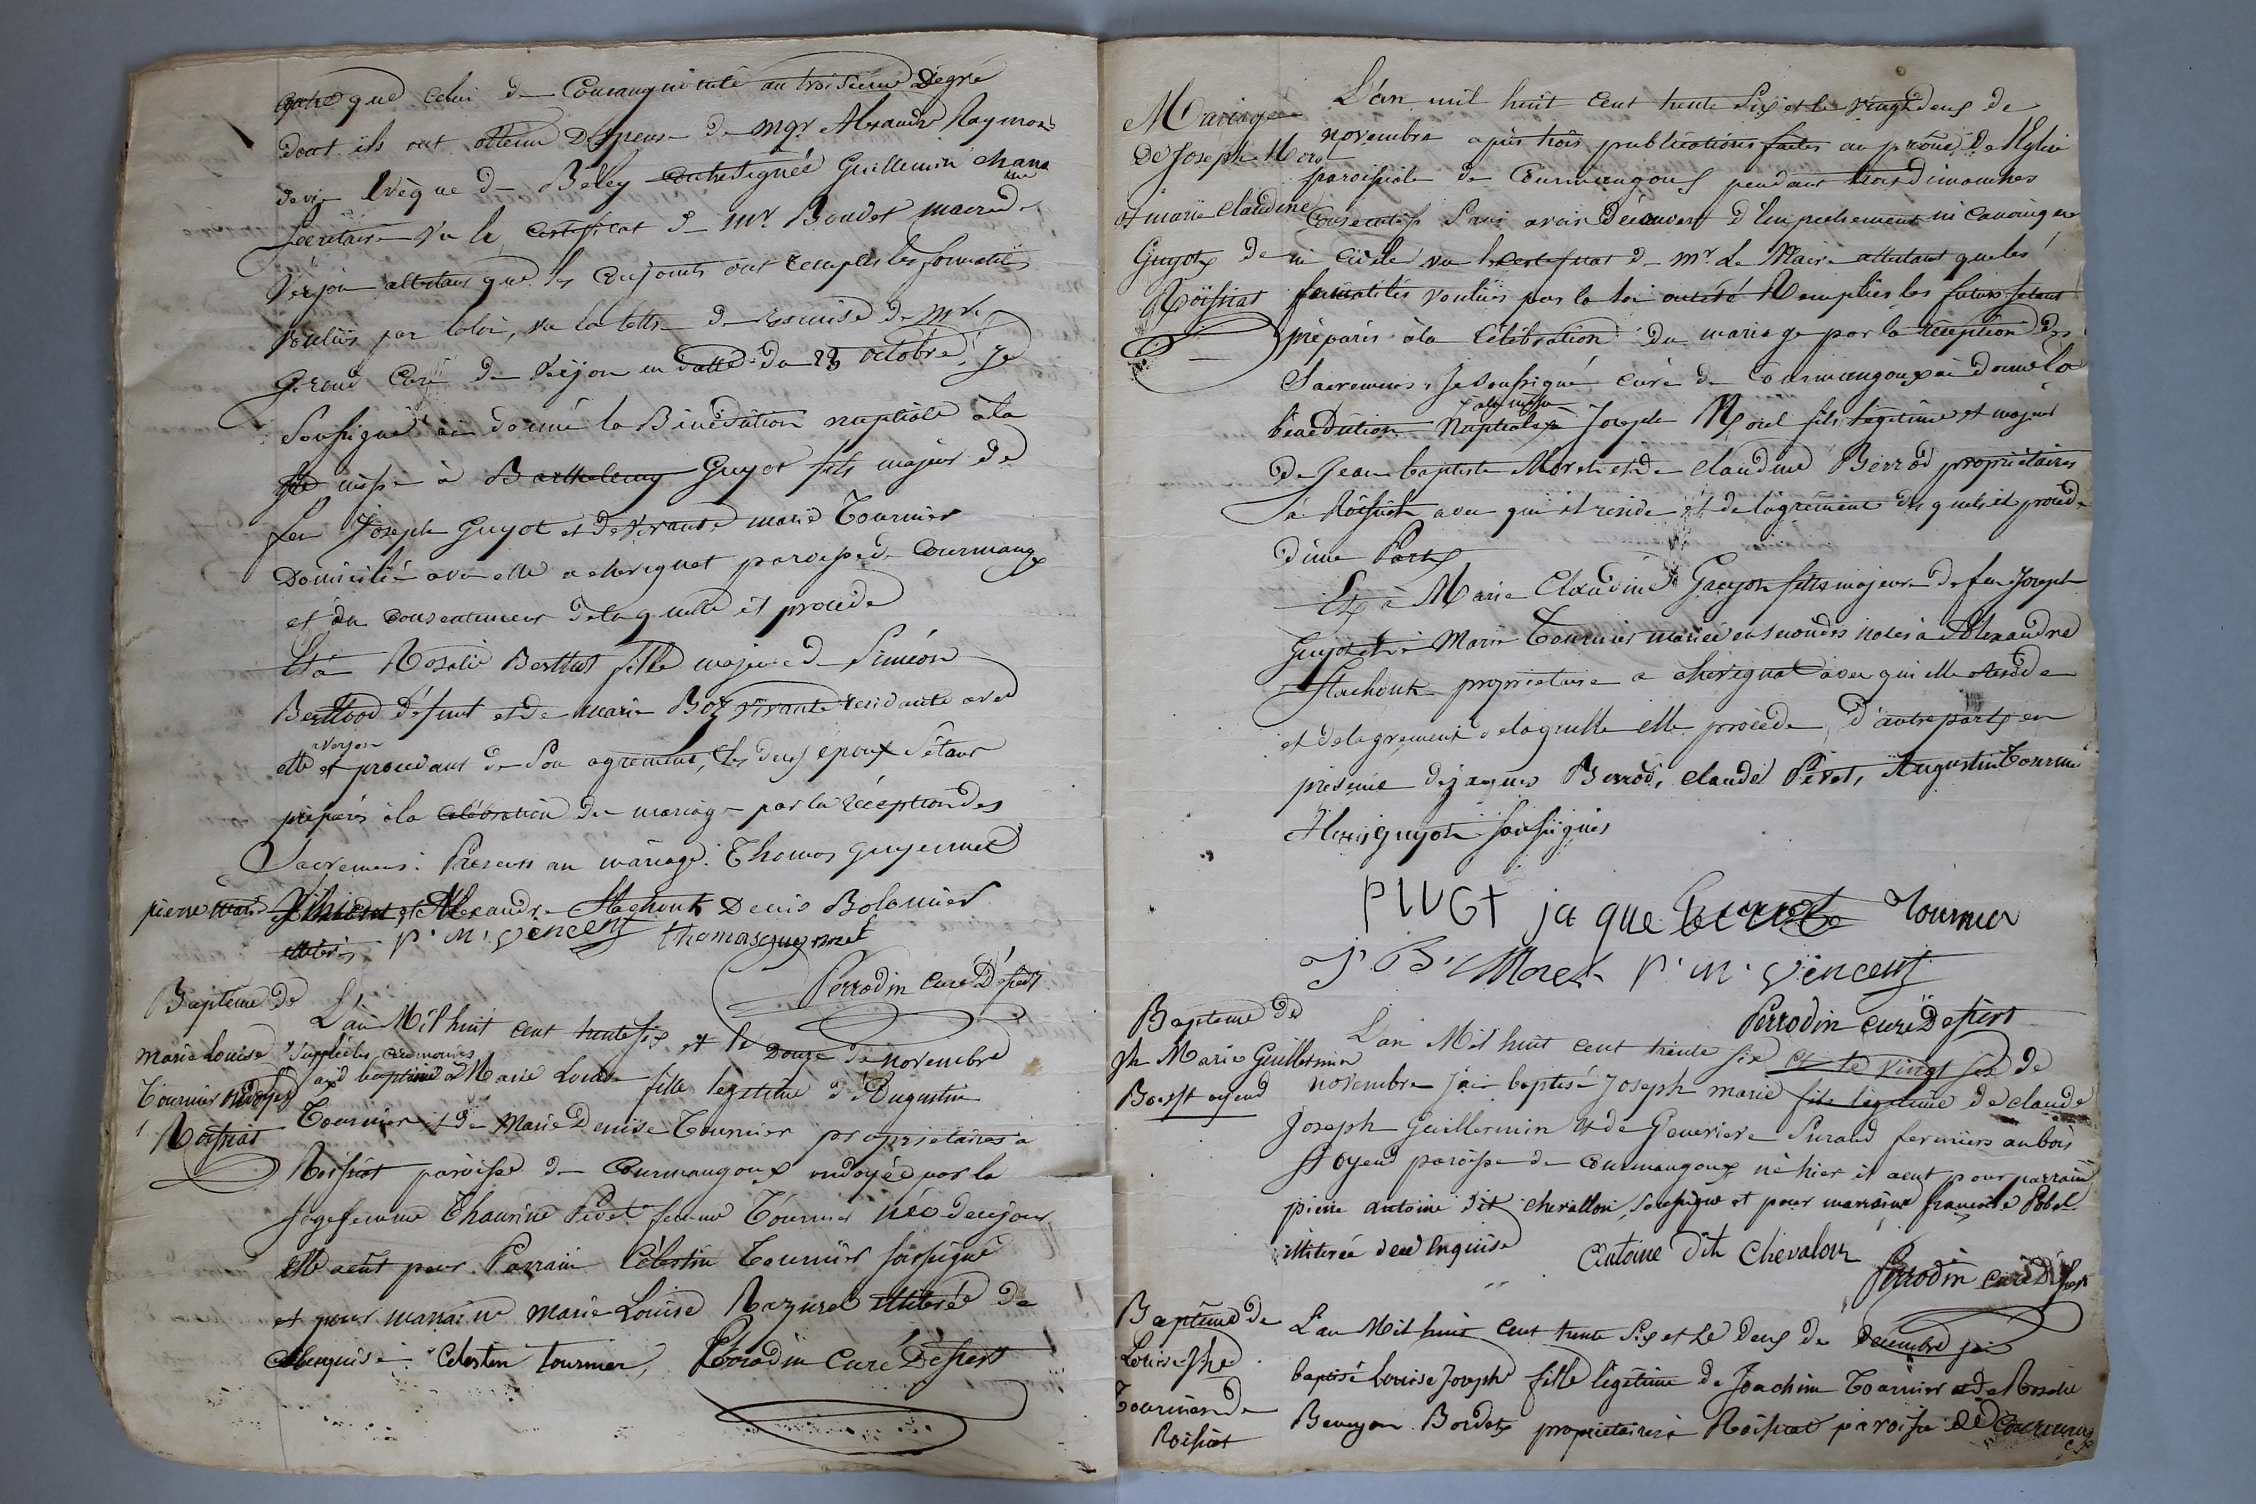 que celui de Consanguinité au troisieme Dégré
dont ils ont obtenu Dispense de mgr Alexandre Raymond
devie Evêque de Beley contresignée Guillemin chan
Secretaire vu le certificat de mr. Boudet maire de
Verjon attestant que les conjoints ont remplis les formalités
voulües par la loi, vu la lettre de remise de mr.
Giroud Curé de Verjon en datte du 23 octobre, Je
Soussigné ai donné la Bénédiction nuptiale à la
Ste messe à Barthelemy Guyot fils majeur de
feu Joseph Guyot et de vivante marie Tournier
Domicilié avec elle a chevignat paroisse de Courmangx
et du consentement de laquelle il procède
Et à Rosalie Berthod fille majeure de Siméon
Berthod défunt et de marie Boz vivante residante avec
a Verjon
elle et procedant de Son agrement, les deux epoux S'étant
préparés à la celébration du mariage par la réception des
Sacremens. Présens au mariage: Thomas guyennet
pierre marie Vincent et Alexandre Flachont Denis Bolomier
illitérés P. M. Vencent thomas gueynnet
Perrodin curé Désserv
Baptême de
marie Louise
Tournier ondoyée
Roissiat
L'an Mil huit cent trentesix et le Douze de novembre
Supplée les ceremonies
au baptême a Marie Louise fille legitime d'Augustin
Tournier et de Marie Denise Tournier proprietaires a
Roissiat paroisse de Courmangoux ondoyée par la
Sagefemme Thaurine Pivet femme Tournier née de ce jour
elle a eut pour Parrain Célestin Tournier soussigné
et pour marraine marie Louise Razurel illitérée de
ce enquise. Celesten tournier, Perrodin Curé Désserv
Mariage
De Joseph Morel
et marie claudine
Guyot de
Roissiat
L'an mil huit cent trente Six et le vingt deux de
novembre après trois publications faites au prône de l'Eglise
paroissiale de Courmangoux pendant trois dimanches
Consecutifs Sans avoir découvert d'Empechement ni canonique
ni civile vu le certificat de mr. Le Maire attestant que les
formalités voulües par la loi ont été Remplies les futurs s'etant
préparés à la Célébration du mariage par la réception des
Sacremens, Je soussigné curé de Courmangoux ai donné la
à la messe
bénédiction Nuptiale à Joseph Morel fils légitime et majeur
de Jean baptiste Morel et de claudine Berrod propriétaires
à Roissiat avec qui il reside et de l'agrément des quels il procède
d'une Part
Et à Marie Claudine Guyot fille majeure de feu Joseph
Guyot et de Marie Tournier mariée en secondes noces à Alexandre
Flachont proprietaire a chevignat avec qui elle reside
et de l'agrement de laquelle elle procède d'autre part, en
présence de jaques Berrod, claude Pivet, Augustin Tournier
Alexis guyot soussignés
PIVGT ja que berrode Tournier
J. B. Morel P. M. Vencent
Perrodin curé Desserv
Baptême de
Jh Marie Guillermin
Bois St oyend
L'an Mil huit cent trente six et le vingt six de
novembre j'ai baptisé Joseph marie fils légitime de claude
Joseph Guillermin et de Genevieve Surand fermiers au bois
St Oyend paroisse de Courmangoux né hier il a eut pour parrain
pierre antoine dit chevallon, soussigné et pour marraine francoise Pobel
illiterée de ce Enquise Antoine dit chevalon
Perrodin curé Desserv
Baptême de
Louise Jhe
Tournier de
Roissiat
L'an Mil huit cent trente Six et Le Deux de decembre j'ai
baptisé Louise Joseph fille légitime de Joachim Tournier et de Rosalie
Bordet proprietaires à Roissiat paroisse de Courmang